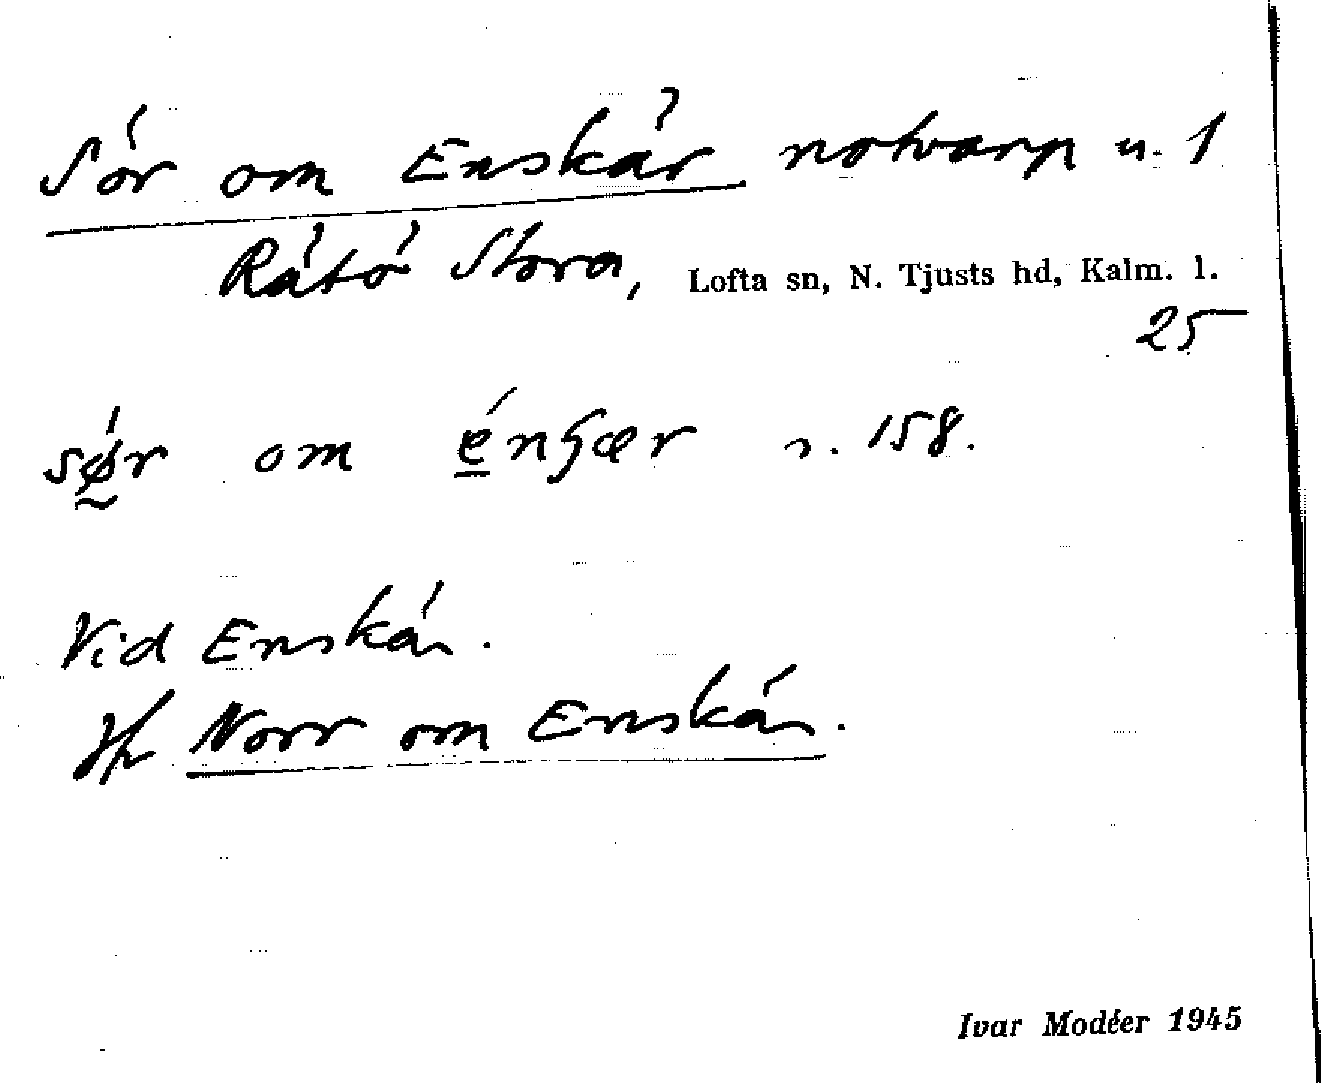 Sör om Enskär notvarp u. 1
Rätö Stora, Lofta sn, N. Tjusts hd, Kalm. l.
25
sǿ̰r om é̱nʃær s. 158.
Vid Enskär.
Jfr Norr om Enskär.
Ivar Modéer 1945